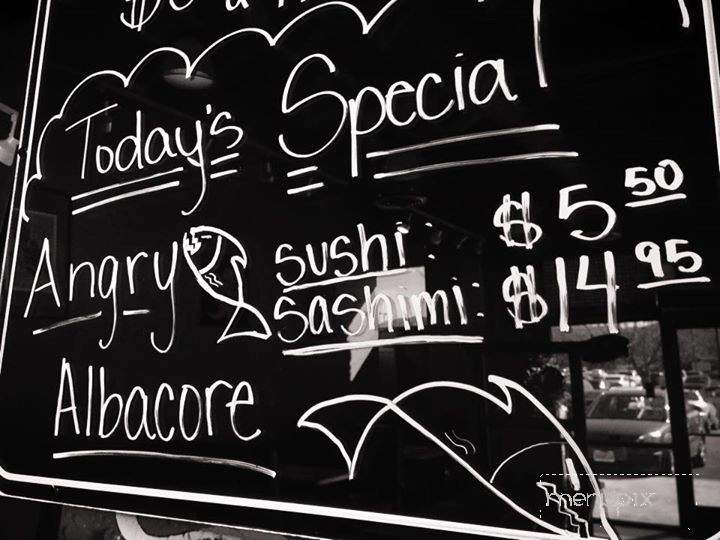 Today's Special
Angry sushi: $5 50
sashimi: $14 95
Albacore
menupix